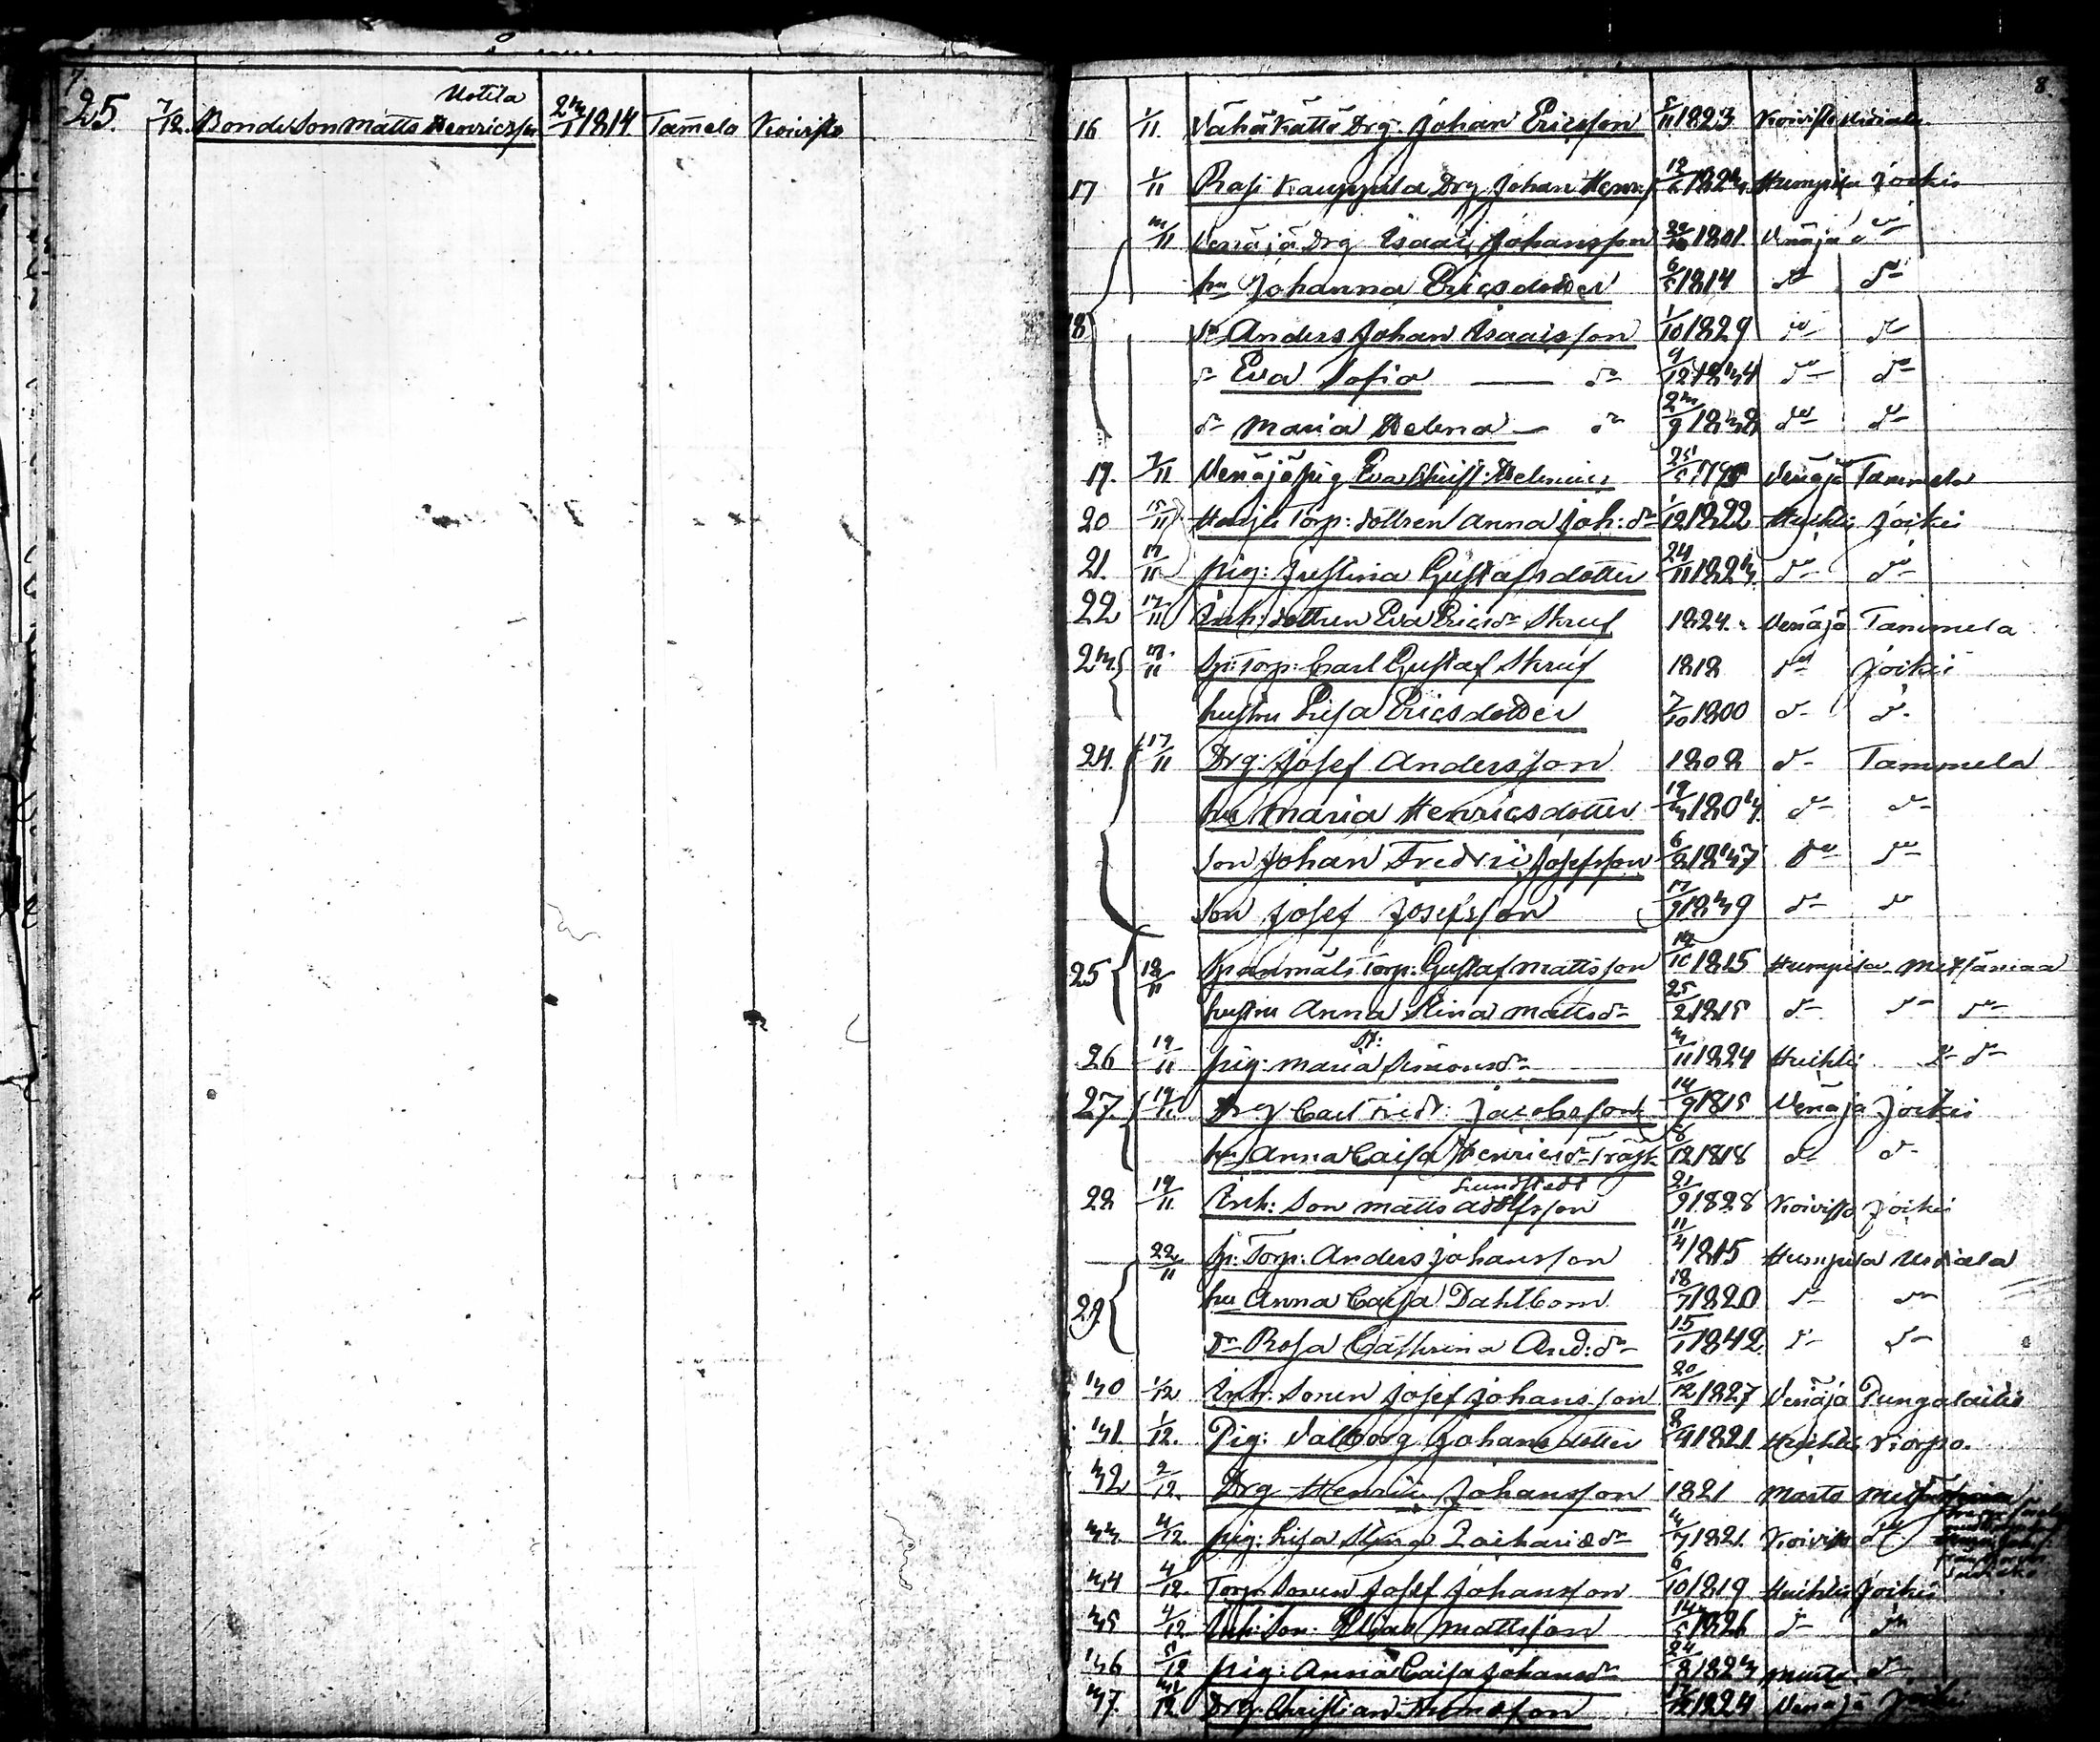 7.
Uotila
25. 7/12. Bonde Son Matts Henricsson 23/1 1814 Tamela Koivisto
8.
16 1/11. Vähä Kättö Drg: Johan Ericsson 5/11 1823 Koivisto Urdiala
17 1/11 Rasi Kauppila Drg Johan Henr: 1823 Humpila Jockis
18 3/11 Venäjä Drg Isaac Johansson 1801 Venäjä do
hu Johanna Ericsdotter 6/5 1814 do do
Sn Anders Johan Isaacsson 1/10 1829 do do
dr Eva Sofia — dr 9/12 1834 do do
dr Maria Helena — dr 23/9 1838 do do
19. 7/11 Venäjä pig Eva Christ: Helenius 25/5 Venäjä Tammela
20 15/11 Torp: dottren Anna Joh: dr 1/12 1822 Huhtis Jockis
21. 17/11 pig: Justina Gustafsdotter 24/11 1823 do do
22 17/11 Inh: dottren Eva Ericsdr Skruf 1824. Venäjä Tammela
23. 17/11 Sp: Torp: Carl Gustaf Skruf 1818 do Jockis
hustru Lisa Ericsdotter 7/10 1800 do do
24. 17/11 Drg: Josef Andersson 1808 do Tammela
hu Maria Henricsdotter 19/3 1803 do do
Son Johan Fredric Josefsson 6/8 1837 do do
Son Josef Josefsson 17/9 1839 do do
25 18/11 Spanmåls Torp: Gustaf Mattsson 19/10 1815 Humpila Metsämaa
hustru Anna Stina Mattsdr 25/2 1815 do do do
26 19/11 pig: Maria Simonsdr 3/11 1824 Huihtis do do
27. 19/11 Drg Carl Fredr: Jacobsson 14/9 1815 Venäjä Jockis
hu Anna Caisa Henricsdr Träsk 8/12 1818 do do
Lundstedt
28 19/11. Inh: Son Matts Adolfsson 21/9 1828 Koivisto Jockis
29. 22/11 Sp: Torp: Anders Johansson 11/4 1815 Humpila Urdiala
hu Anna Caisa Dahlbom 18/7 1820 do do
Dr Rosa Cathrina And: dr 15/1 1842 do do
30 1/12 Inh: Sonen Josef Johansson 20/12 1827 Venäjä Pungalaitio
31. 1/12. Pig: Valborg Johansdotter 8/9 1821 Huihtis Korpo.
32 2/12. Drg Henric Johansson 1821 Märta
33. 4/12. pig: Lisa Stina Zachariædr 3/7 1821. Koivisto do
34 4/12. Torp: Sonen Josef Johansson 6/10 1819 Huihtis Jockis
35 4/12 Inh: Son: Elias Mattsson 14/5 1826 do do
36 5/12 pig: Anna Caisa Johansdr 24/8 1823 do
37. 12 Drg: Christian 1824 Venäjä Jockis